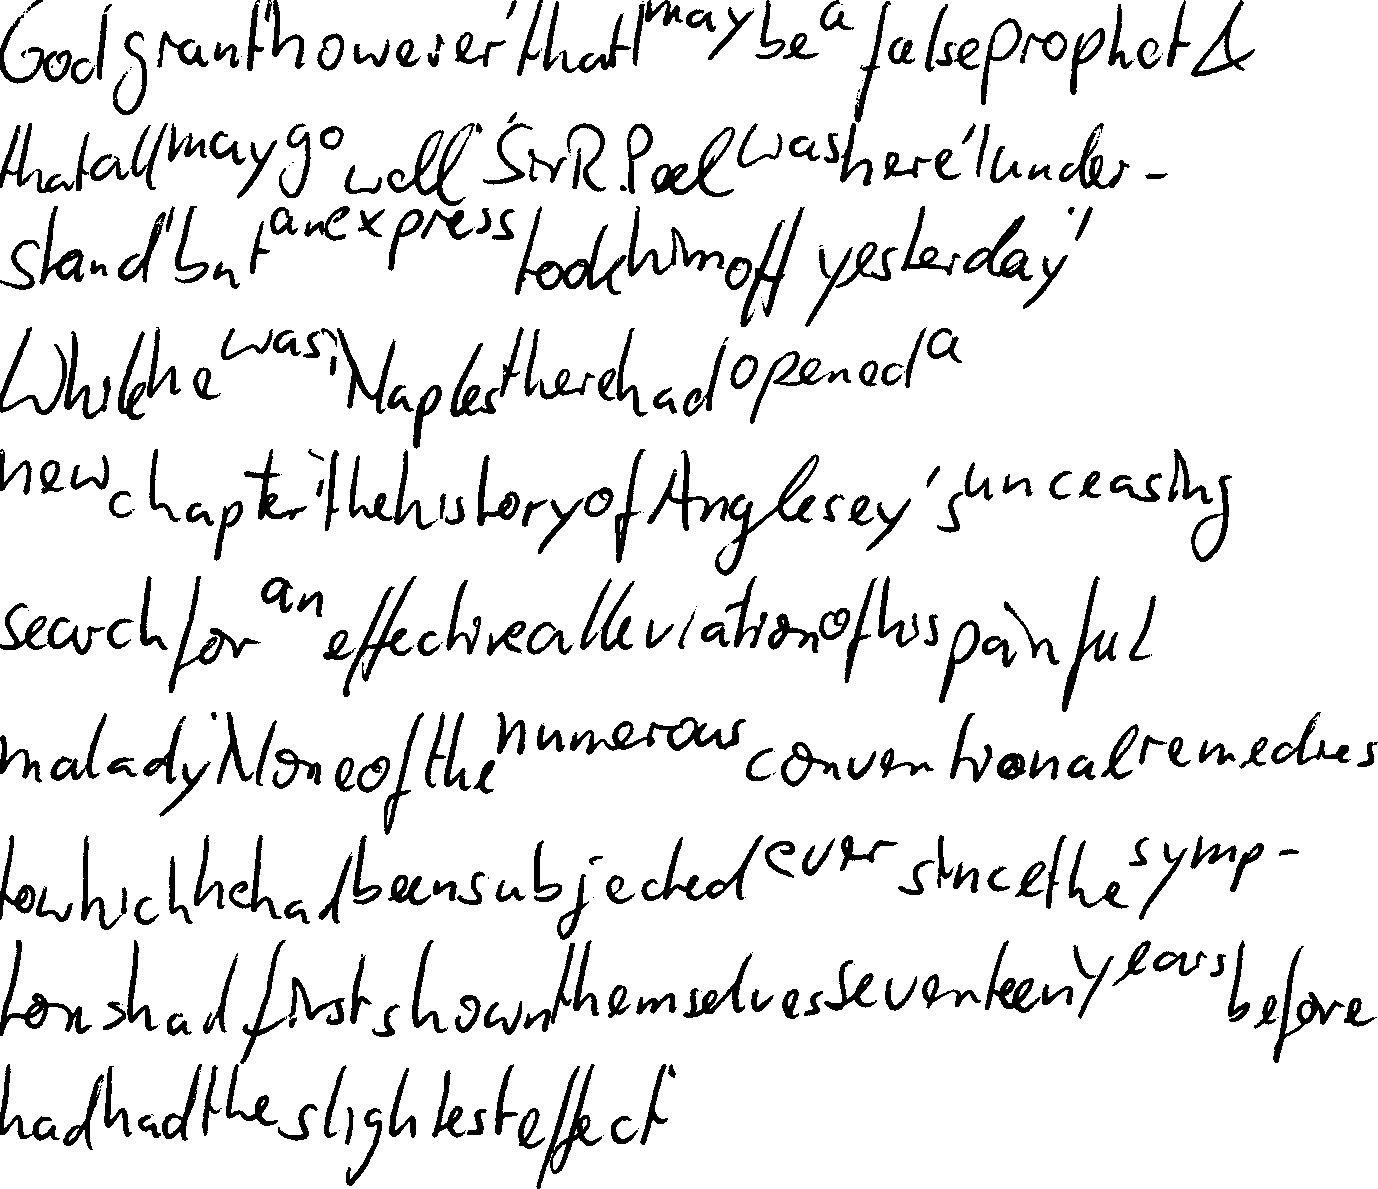 God grant however that I may be a false prophet &
that all may go well Sir R. Peel was here I under-
stand but an express took him off yesterday
While he was Naples there had opened a
new chapter the history of Anglesey's unceasing
search for an effective alleviation of his painful
malady None of the numerous conventional remedies
to which he had been subjected ever since the symp-
toms had first shown themselves seventeen years before
had had the slightest effect